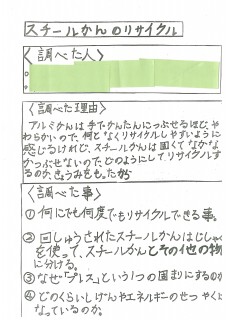 スチールかんのリサイクル
〈調べた人〉
〈調べた理由〉
アルミかんは手でかんたんにつぶせるほど、や
わらかいので、何となくリサイクルしやすいように
感じるけれど、スチールかんは固くてなかな
かつぶせないので、どのようにしてリサイクルす
るのか、きょうみをもったから
〈調べた事〉
①何にでも何度でもリサイクルできる事。
②回しゅうされたスチールかんはじしゃ
を使って、スチールかんとその他の物
に分ける。
③なぜ「プレス」という1つの固まりにするのか
④どのくらいしげんやエネルギーのせつやくに
なっているのか。